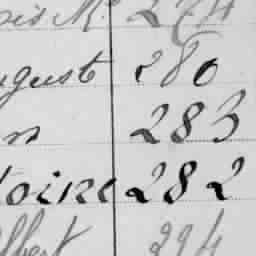 M. 274
ugust 280
n 283
toine 282
lbert 294